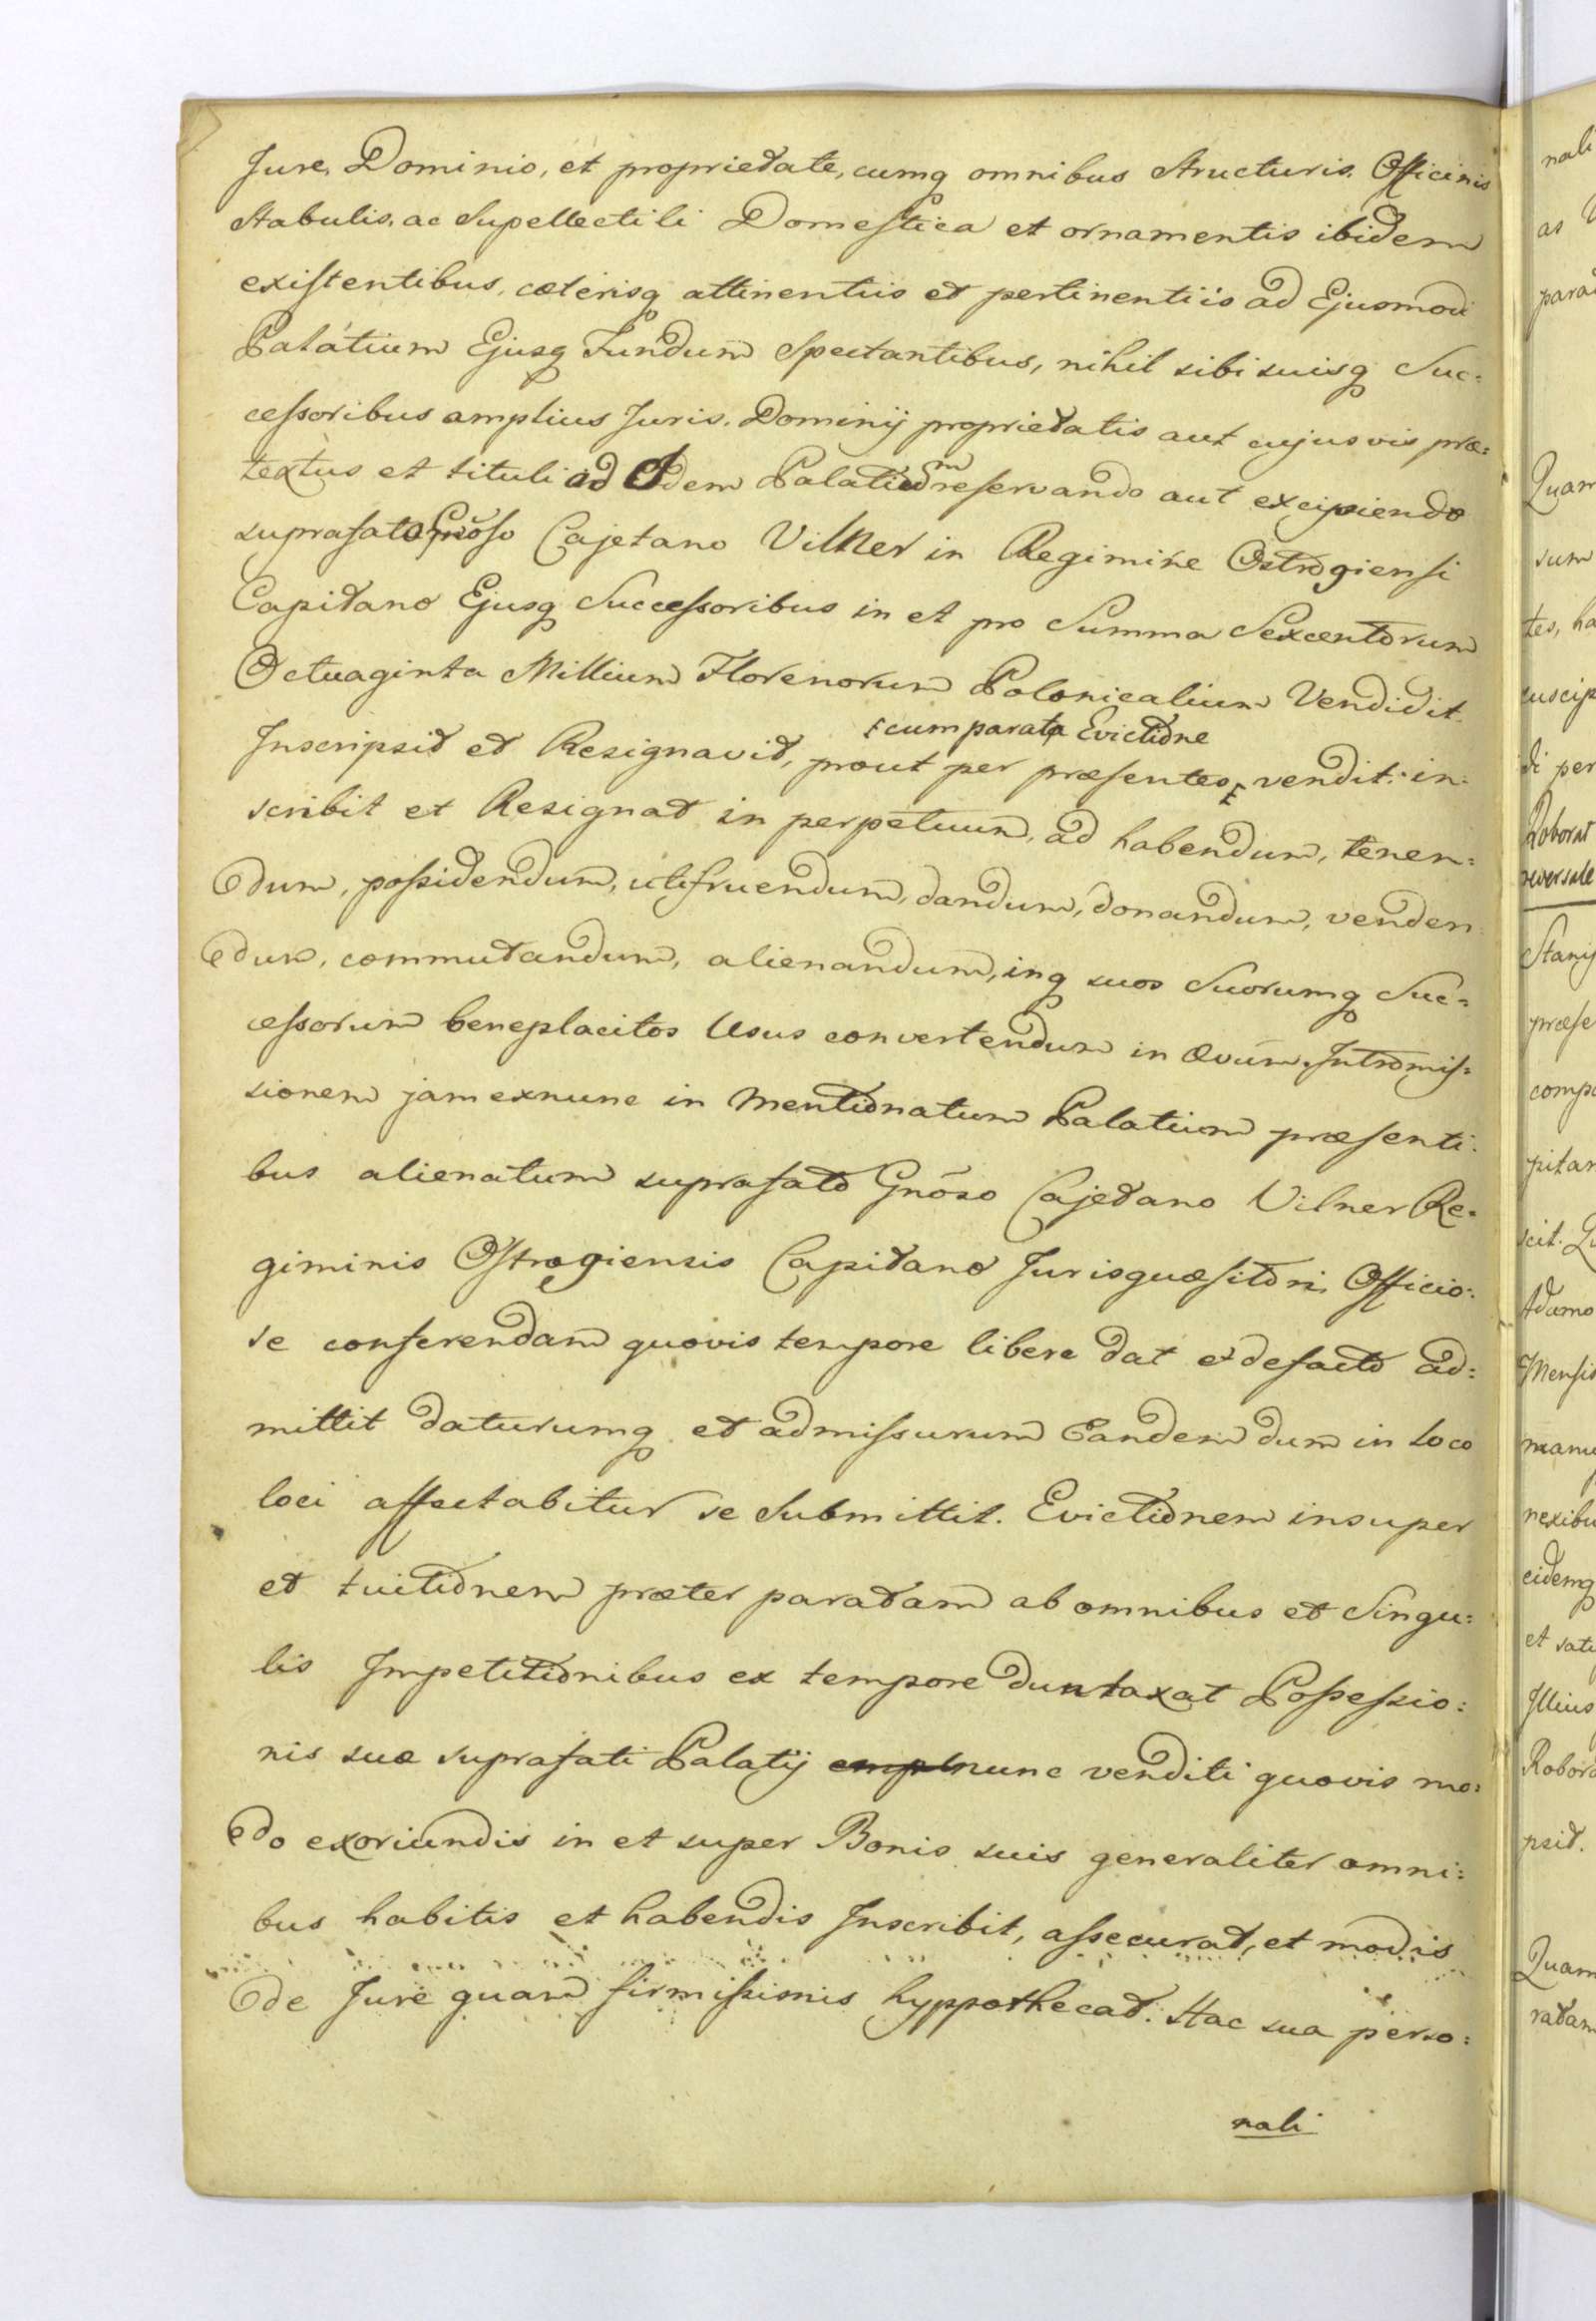 Jure, Dominio, et proprietate, cumq omnibus Structuris. Officinis
Stabulis, ac Supellectili Domestica et ornamentis ibidem
existentibus, cæterisq attinentiis et pertinentiis ad Ejusmodi
Palatium Ejusq Fundum Spectantibus, nihil sibi suisq Suc=
cessoribus amplius Juris. Dominij proprietatis aut cujusvis præ=
textus et tituli ad Idem Palatium reservando aut excipiendo
suprafato Gnõso Cajetano Vilner in Regimine Ostrogiensi
Capitano Ejusq Successoribus in et pro Summa Sexcentorum
Octuaginta Millium Florenorum Polonicalium Vendidit.
cum parata Evictione
Inscripsit et Resignavit, prout per præsentes vendit. in=
scribit et Resignat in perpetuum, ad habendum, tenen=
dum, possidendum, utifruendum, dandum, donandum, venden
dum, commutandum, alienandum, inq suos Suorumq Suc=
cessorum beneplacitos Usus convertendum in ævum. Intromis=
sionem jam exnunc in mentionatum Palatium præsenti=
bus alienatum suprafato Gnõso Cajetano Vilner Re=
giminis Ostrogiensis Capitano Jurisquæsitori Officio=
se conferendam quovis tempore libere dat et defacto ad=
mittit daturumq et admissurum Eandem dum in loco
loci affectabitur se Submittit. Evictionem insuper
et tuitionem præter paratam ab omnibus et Singu=
lis Impetitionibus ex tempore duntaxat Possessio=
nis suæ suprafati Palatij nunc venditi quovis mo=
do exoriundis in et super Bonis suis generaliter omni=
bus habitis et habendis Inscribit, assecurat, et modis
de Jure quam firmissimis hyppothecat. Hac sua perso=
nali
nali
as
Quam
sum
di per
Roborat
reversale
præse
Adamo
Mensis
nexibu
eidemq
Illius
psit.
Quam
ratam